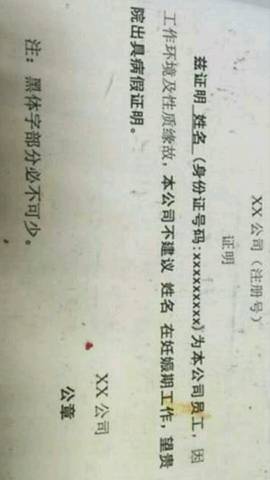 XX 公司（注册号）
证明
兹证明 姓名 (身份证号码:xxxxxxxxx)为本公司员工，因
工作环境及性质缘故，本公司不建议 姓名 在妊娠期工作，望贵
院出具病假证明。
XX 公司
公章
注：黑体字部分必不可少。